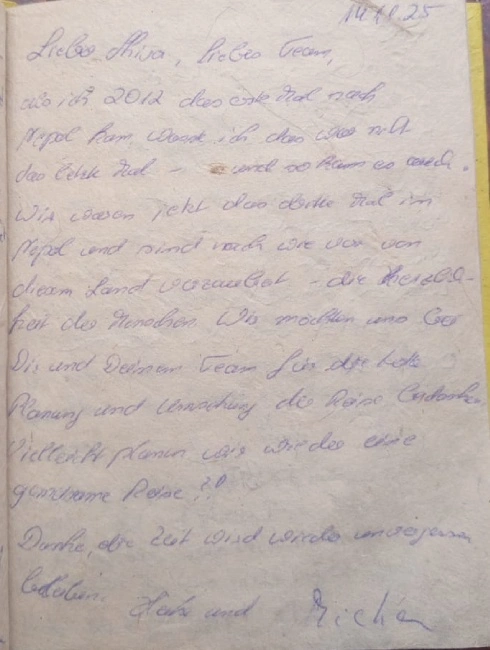 14.10.25
Lieber Shiva, liebes Team,
als ich 2012 das erste Mal nach
Nepal kam, wusste ich das war nicht
das letzte Mal – und so kam es auch.
Wir waren jetzt das dritte Mal in
Nepal und sind nach wie vor von
diesem Land verzaubert – die Herzlich-
keit der Menschen. Wir möchten uns bei
Dir und Deinem Team für die tolle
Planung und Umsetzung der Reise bedanken.
Vielleicht planen wir wieder eine
gemeinsame Reise?!
Danke, die Zeit wird wieder unvergessen
bleiben.
und